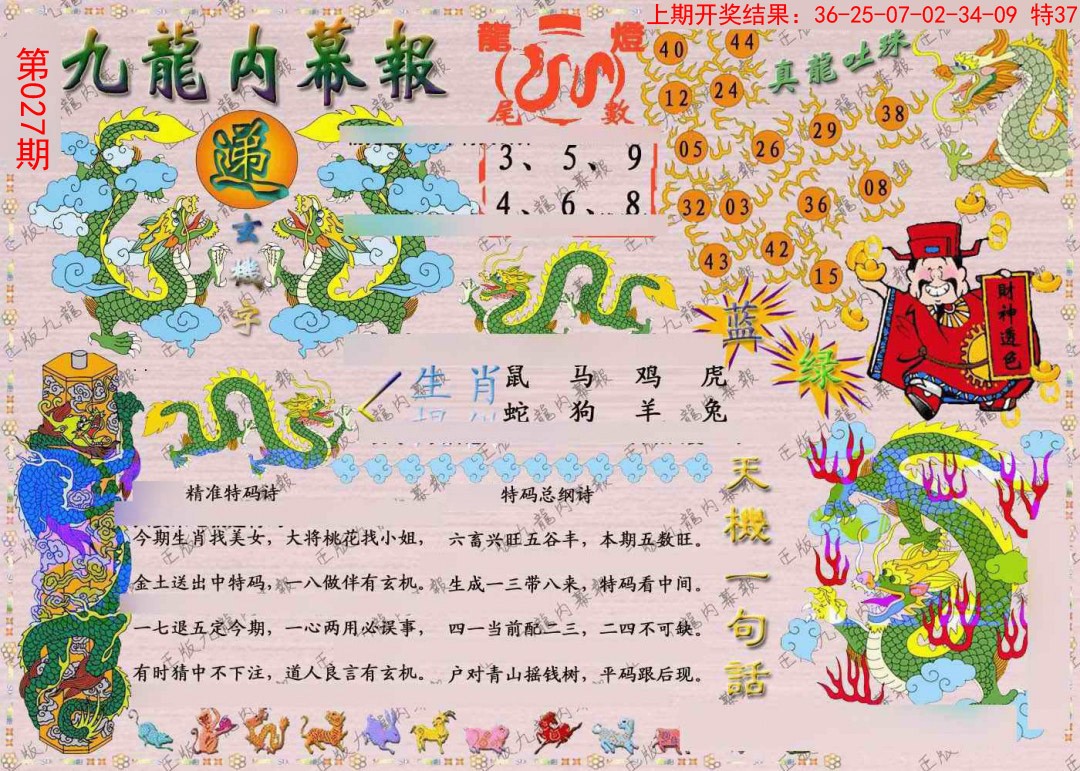 上期开奖结果：36-25-07-02-34-09 特37
第027期
九龍内幕報
龍燈
尾數
3、5、9
4、6、8
真龍吐珠
40 44
12 24
29 38
05 26
32 03 36 08
43 42 15
递
玄
機
字
蓝
绿
財神透色
生肖
鼠 马 鸡 虎
蛇 狗 羊 兔
精准特码诗
今期生肖找美女，大将桃花找小姐，
金土送出中特码，一八做伴有玄机。
一七退五定今期，一心两用必误事，
有时猜中不下注，道人良言有玄机。
特码总纲诗
六畜兴旺五谷丰，本期五数旺。
生成一三带八来，特码看中间。
四一当前配二三，二四不可缺。
户对青山摇钱树，平码跟后现。
天機一句話
正版九龍内幕報